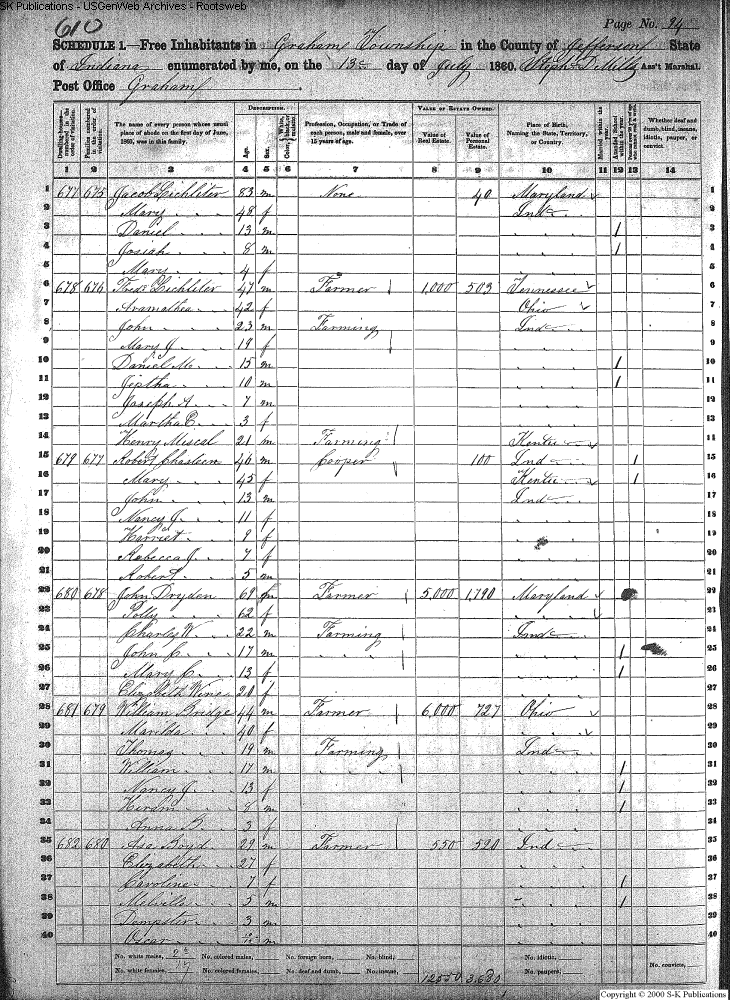 S-K Publications - USGenWeb Archives - Rootsweb
610
Page No. 94
SCHEDULE 1.—Free Inhabitants in Graham Township in the County of Jefferson State
of Indiana enumerated by me, on the 13th day of July 1860. Steph D Mills Ass't Marshal.
Post Office Graham
DESCRIPTION. VALUE OF ESTATE OWNED.
Dwelling-houses—numbered in the order of visitation. Families numbered in the order of visitation. The name of every person whose usual place of abode on the first day of June, 1860, was in this family. Age. Sex. Color, Profession, Occupation, or Trade of each person, male and female, over 15 years of age. Value of Real Estate. Value of Personal Estate. Place of Birth, Naming the State, Territory, or Country. Married within the year. Attended School within the year. Whether deaf and dumb, blind, insane, idiotic, pauper, or convict.
1 2 3 4 5 6 7 8 9 10 11 12 13 14
1 677 675 Jacob Lichleter 83 m None 40 Maryland 1
2 Mary 48 f Ind 2
3 Daniel 13 m 1 3
4 Josiah 8 m 1 4
5 Mary 4 f 5
6 678 676 Fred Lichleter 47 m Farmer 1,000 503 Tennessee 6
7 Aramathea 42 f Ohio 7
8 John 23 m Farming Ind 8
9 Mary J. 19 f 9
10 Daniel M. 15 m 1 10
11 Jeptha 10 m 1 11
12 Joseph A 7 m 12
13 Martha E. 3 f 13
14 Henry Miscal 21 m Farming Kentu 14
15 679 677 Robert Chasteen 46 m Cooper 100 Ind 1 15
16 Mary 45 f Kentu 1 16
17 John 13 m Ind 17
18 Nancy J. 11 f 18
19 Harriet 9 f 19
20 Rebecca J. 7 f 20
21 Robert 5 m 21
22 680 678 John Dryden 69 m Farmer 5,000 1,790 Maryland 22
23 Polly 62 f 23
24 Charles W. 22 m Farming Ind 24
25 John C. 17 m 1 25
26 Mary C. 13 f 1 26
27 Elizabeth Wine 20 f 27
28 681 679 William Bridge 44 m Farmer 6,000 727 Ohio 28
29 Marilda 40 f 29
30 Thomas 19 m Farming Ind 30
31 William 17 m 1 31
32 Nancy J. 13 f 1 32
33 Hiram 8 m 1 33
34 Anna B. 3 f 34
35 682 680 Asa Boyd 29 m Farmer 550 520 Ind 35
36 Elizabeth 27 f 36
37 Caroline 7 f 1 37
38 Melville 5 m 1 38
39 Dempster 3 m 39
40 Oscar m 40
No. white males, No. colored males, No. foreign born, No. blind, No. idiotic,
No. white females, 17 No. colored females, No. deaf and dumb, No. insane, 12550 3,680 No. paupers, No. convicts,
Copyright © 2000 S-K Publications